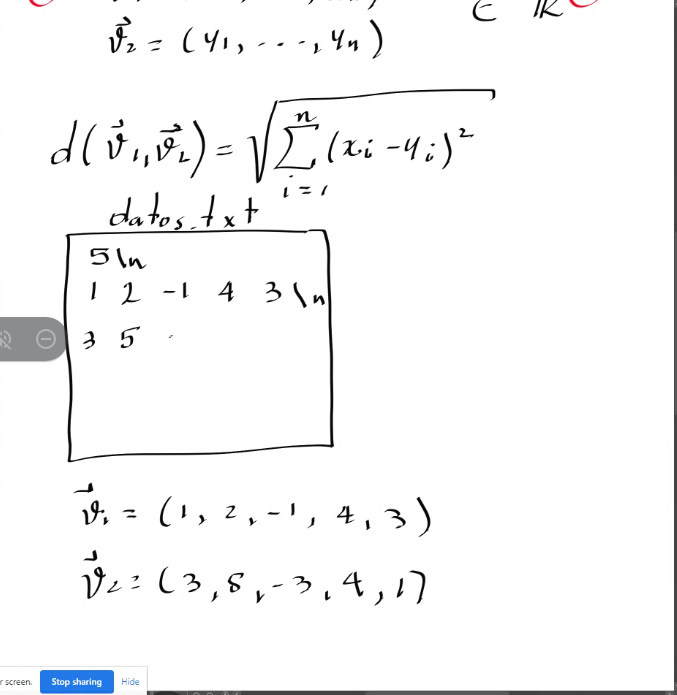 ∈ ℝ
v⃗₂ = (y₁, ..., yₙ)
d(v⃗₁, v⃗₂) = √ n Σ i=1 (xᵢ - yᵢ)²
datos.txt
5\n
1 2 -1 4 3\n
3 5
v⃗₁ = (1, 2, -1, 4, 3)
v⃗₂ = (3, 5, -3, 4, 1)
r screen. Stop sharing Hide